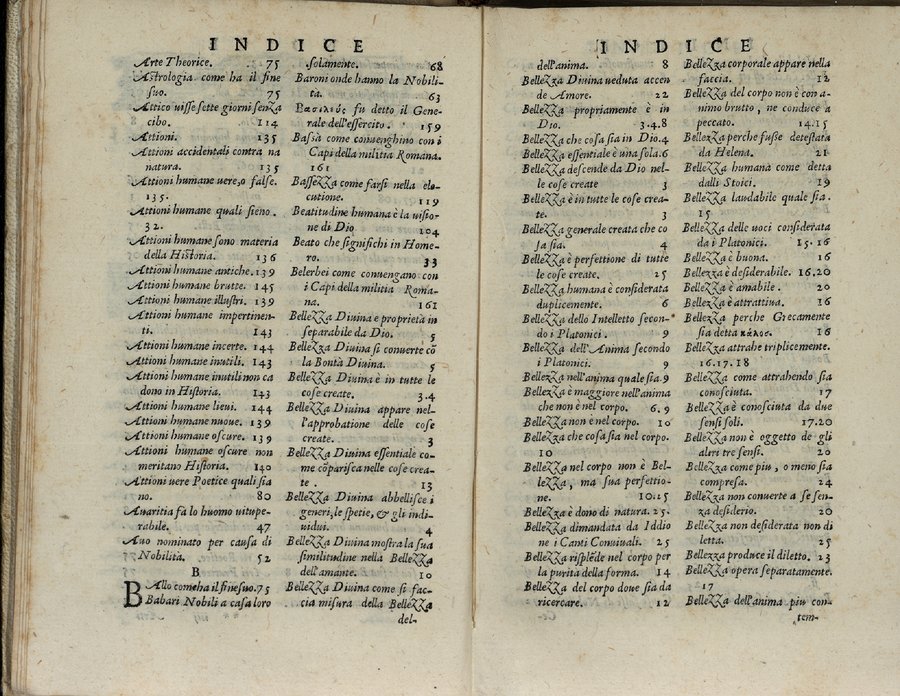 INDICE
Arte Theorice. 75
Astrologia come ha il fine
suo. 75
Attico uisse sette giorni senza
cibo. 114
Attioni. 135
Attioni accidentali contra na
natura. 135
Attioni humane uere,o false.
135.
Attioni humane quali sieno.
32.
Attioni humane sono materia
della Historia. 136
Attioni humane antiche. 139
Attioni humane brutte. 145
Attioni humane illustri. 139
Attioni humane impertinen-
ti. 143
Attioni humane incerte. 144
Attioni humane inutili. 143
Attioni humane inutili non ca
dono in Historia. 143
Attioni humane lieui. 144
Attioni humane nuoue. 139
Attioni humane oscure. 139
Attioni humane oscure non
meritano Historia. 140
Attioni uere Poetice quali sia
no. 80
Auaritia fa lo huomo uitupe-
rabile. 47
Auo nominato per causa di
Nobilita. 52
B
BAllo come ha il fine suo. 75
Babari Nobili a casa loro
solamente. 68
Baroni onde hanno la Nobili-
ta. 63
Βασιλεύς fu detto il Gene-
rale dell'essercito. 159
Bassà come conuenghino con i
Capi della militia Romana.
161
Bassezza come farsi nella elo-
cutione. 119
Beatitudine humana è la uisio-
ne di Dio 104
Beato che significhi in Home-
ro. 33
Belerbei come conuengano con
i Capi della militia Roma-
na. 161
Bellezza Diuina e proprietà in
separabile da Dio. 5
Bellezza Diuina si conuerte cō
la Bontà Diuina. 5
Bellezza Diuina è in tutte le
cose create. 3.4
Bellezza Diuina appare nel-
l'approbatione delle cose
create. 3
Bellezza Diuina essentiale co-
me cōparisca nelle cose crea-
te. 13
Bellezza Diuina abbellisce i
generi, le spetie, & gli indi-
uidui. 4
Bellezza Diuina mostra la sua
similitudine nella Bellezza
dell'amante. 10
Bellezza Diuina come si fac-
cia misura della Bellezza
del-
INDICE
dell'anima. 8
Bellezza Diuina ueduta accen
de Amore. 22
Bellezza propriamente è in
Dio. 3.4.8
Bellezza che cosa sia in Dio. 4
Bellezza essentiale è una sola. 6
Bellezza descende da Dio nel-
le cose create 3
Bellezza è in tutte le cose crea-
te. 3
Bellezza generale creata che co
sa sia. 4
Bellezza è perfettione di tutte
le cose create. 25
Bellezza humana è considerata
duplicemente. 6
Bellezza dello Intelletto secon-
do i Platonici. 9
Bellezza dell'Anima secondo
i Platonici. 9
Bellezza nell'anima quale sia. 9
Bellezza è maggiore nell'anima
che non è nel corpo. 6.9
Bellezza non è nel corpo. 10
Bellezza che cosa sia nel corpo.
10
Bellezza nel corpo non è Bel-
lezza, ma sua perfettio-
ne. 10.15
Bellezza è dono di natura. 25.
Bellezza dimandata da Iddio
ne i Canti Conuiuali. 25
Bellezza risplēde nel corpo per
la purità della forma. 14
Bellezza del corpo doue sia da
ricercare. 12
Bellezza corporale appare nella
faccia. 12
Bellezza del corpo non è con a-
nimo brutto, ne conduce a
peccato. 14.15
Bellezza perche fusse detestata
da Helena. 21
Bellezza humana come detta
dalli Stoici. 19
Bellezza laudabile quale sia.
15
Bellezza delle uoci considerata
da i Platonici. 15.16
Bellezza è buona. 16
Bellezza è desiderabile. 16.20
Bellezza è amabile. 20
Bellezza è attrattiua. 16
Bellezza perche Grecamente
sia detta κάλος. 16
Bellezza attrahe triplicemente.
16.17.18
Bellezza come attrahendo sia
conosciuta. 17
Bellezza è conosciuta da due
sensi soli. 17.20
Bellezza non è oggetto de gli
altri tre sensi. 20
Bellezza come piu, o meno sia
compresa. 24
Bellezza non conuerte a se sen-
za desiderio. 20
Bellezza non desiderata non di
letta. 25
Bellezza produce il diletto. 23
Bellezza opera separatamente.
17
Bellezza dell'anima piu con-
tem-